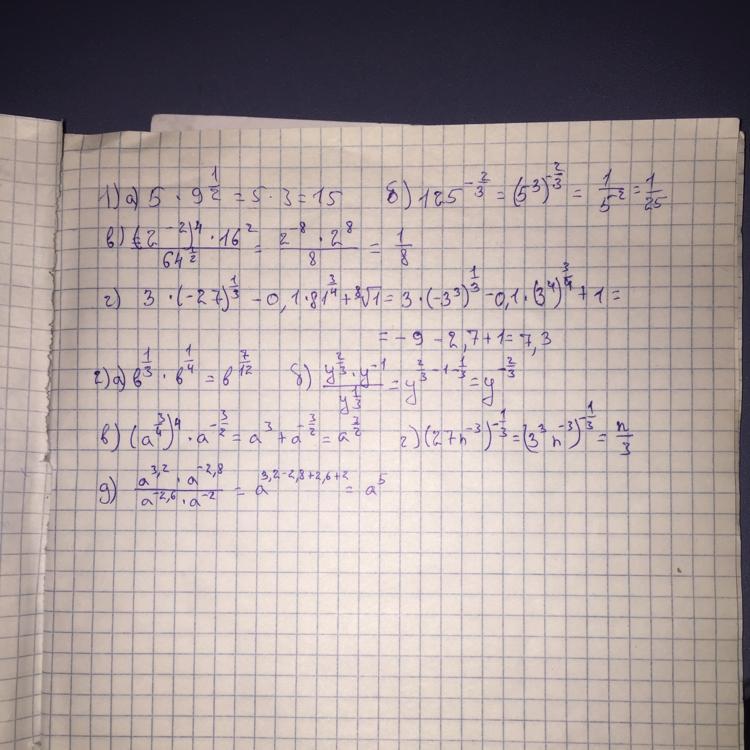 1) а) 5 · 9^{1/2} = 5 · 3 = 15   б) 125^{-2/3} = (5^3)^{-2/3} = 1/5^2 = 1/25
в) ((2^{-2})^4 · 16^2)/(64^{1/2}) = (2^{-8} · 2^8)/8 = 1/8
г) 3 · (-27)^{1/3} - 0,1 · 81^{3/4} + ^8√1 = 3 · (-3^3)^{1/3} - 0,1 · (3^4)^{3/4} + 1 =
= -9 - 2,7 + 1 = 7,3
2) а) в^{1/3} · в^{1/4} = в^{7/12}   б) (y^{2/3} · y^{-1})/(y^{1/3}) = y^{2/3 - 1 - 1/3} = y^{-2/3}
в) (a^{3/4})^4 · a^{-3/2} = a^3 + a^{-3/2} = a^{3/2}   г) (27n^{-3})^{-1/3} = (3^3 n^{-3})^{-1/3} = n/3
д) (a^{3,2} · a^{-2,8})/(a^{-2,6} · a^{-2}) = a^{3,2-2,8+2,6+2} = a^5